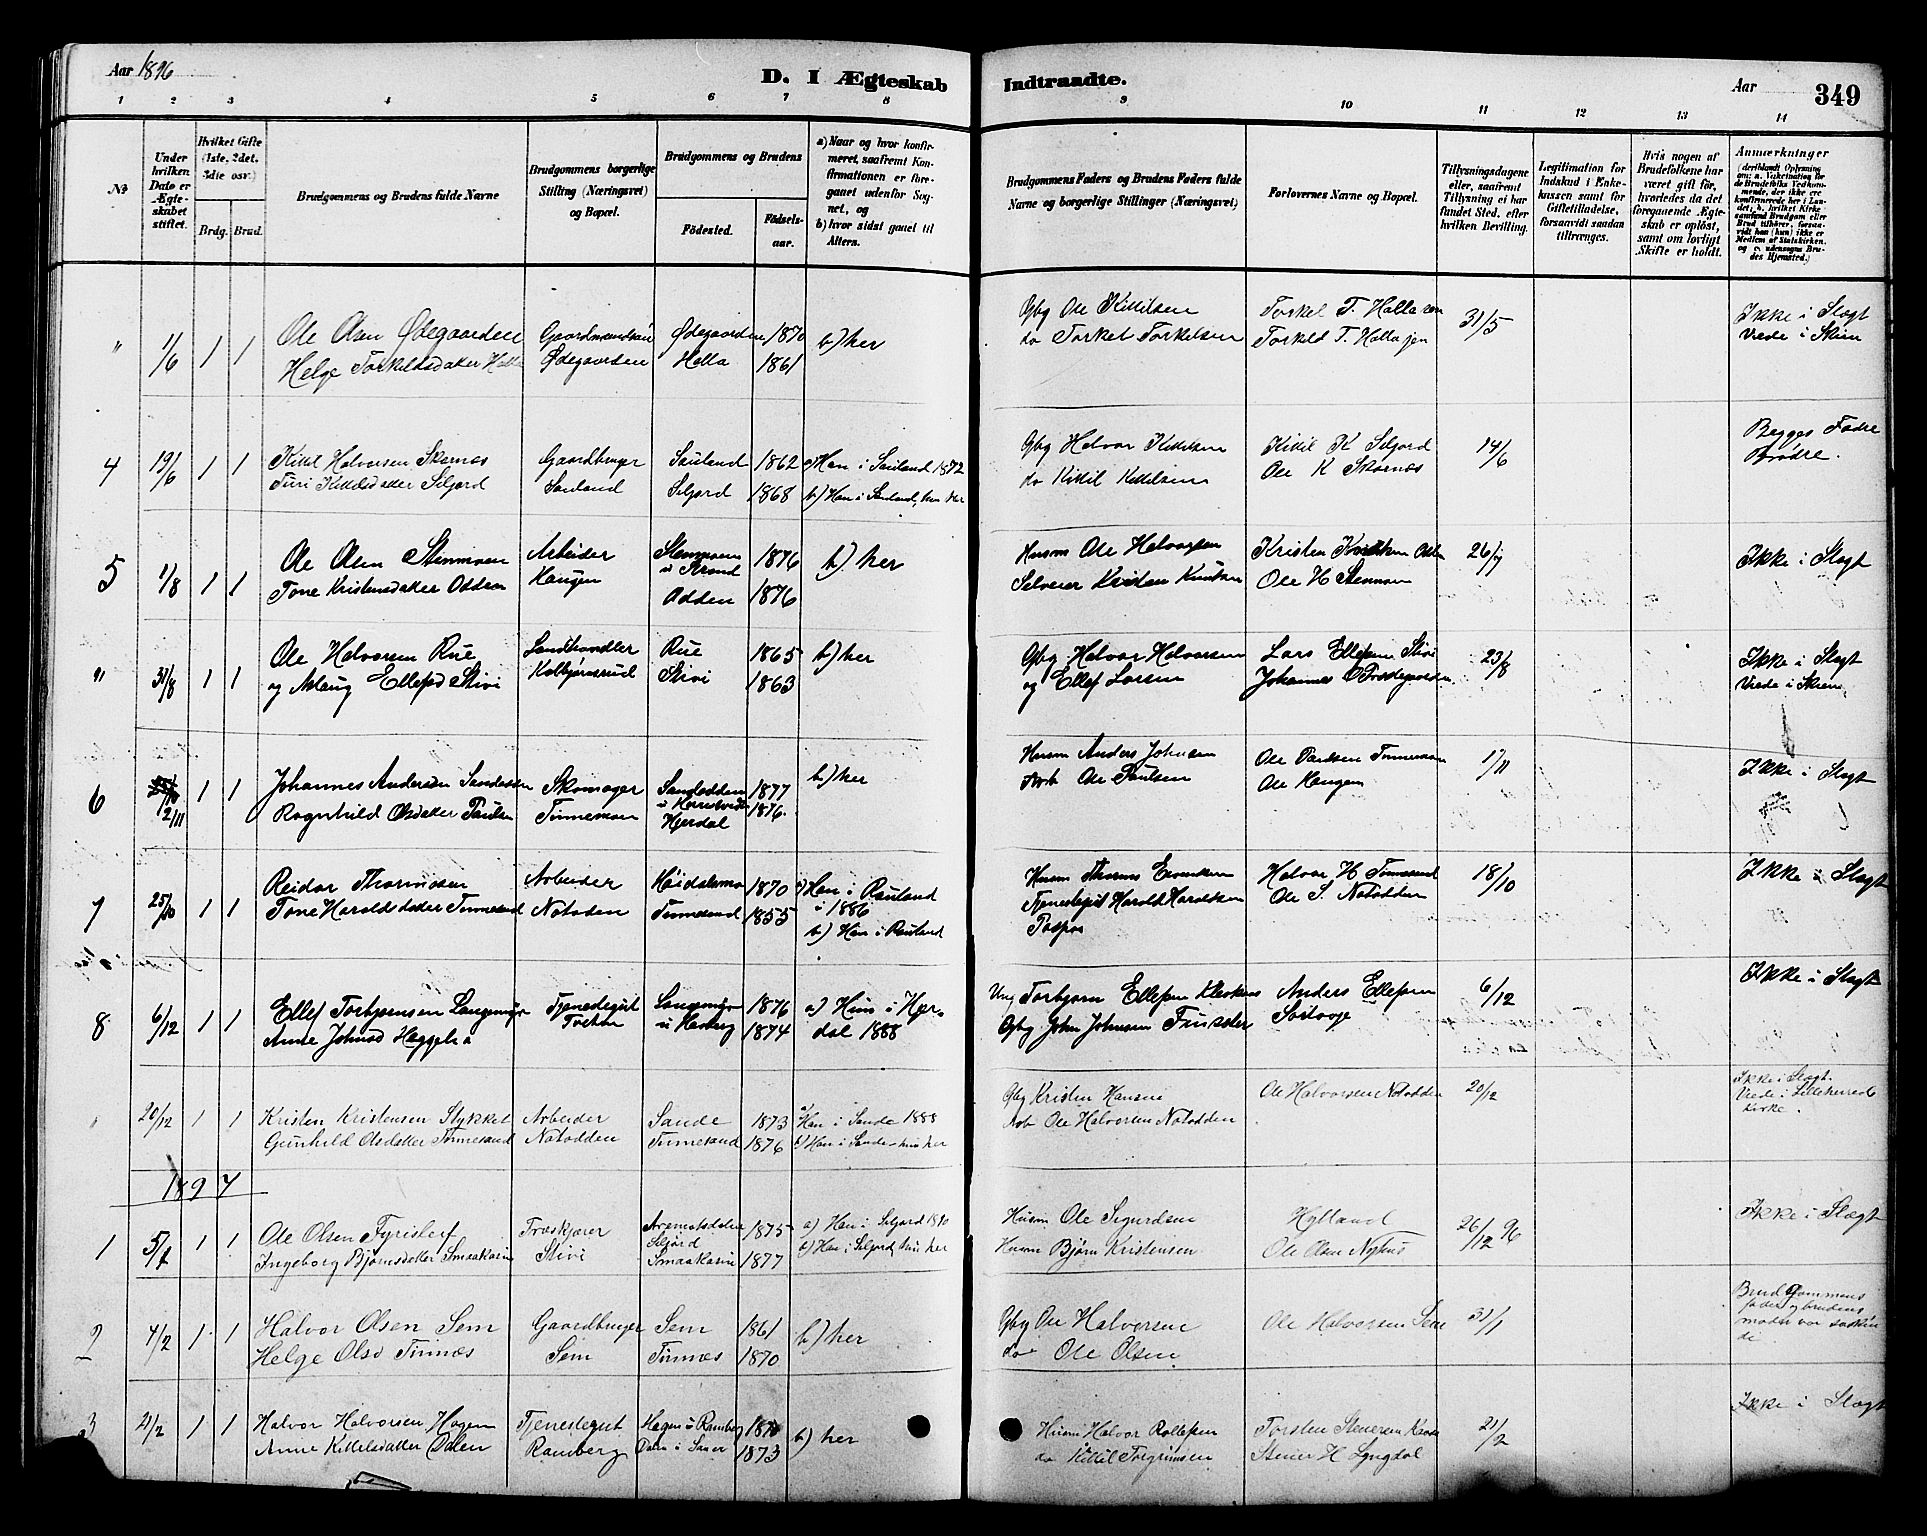 Aar 1896
D. I Ægteskab
Indtraadte.
Aar
349
1 2 3 4 5 6 7 8 9 10 11 12 13 14
№
Under hvilken Dato er Ægteskabet stiftet.
Hvilket Gifte (1ste, 2det, 3die osv.)
Brdg. Brud.
Brudgommens og Brudens fulde Navne
Brudgommens borgerlige Stilling (Næringsvei) og Bopæl.
Brudgommens og Brudens
Fødested.
Fødselsaar.
a) Naar og hvor konfirmeret, saafremt Konfirmationen er foregaaet udenfor Sognet, og
b) hvor sidst gaaet til Alters.
Brudgommens Faders og Brudens Faders fulde Navne og borgerlige Stillinger (Næringsvei)
Forlovernes Navne og Bopæl.
Tillysningsdagene eller, saafremt Tillysning ei har fundet Sted, efter hvilken Bevilling.
Legitimation for Indskud i Enkekassen samt for Giftetilladelse, forsaavidt saadan tiltrænges.
Hvis nogen af Brudefolkene har været gift før, hvorledes da det foregaaende Ægteskab er opløst, samt om lovligt Skifte er holdt.
Anmærkninger
(deriblandt Oplysning om: a. Vakcination for de Brudefolks Vedkommende, der ikke ere konfirmerede her i Landet; b. hvilket Kirkesamfund Brudgom eller Brud tilhører, forsaavidt han (hun) ikke er Medlem af Statskirken, og c. udensogns Brudes Hjemsted.)
" 1/6 1 1 Ole Olsen Ødegaarden Gaardmandssøn Ødegaarden 1870 b) her Gbg Ole Kittilsen Torkel T. Holla sen 31/5 Ikke i Slægt
Helge Torkeldsdatter Holla Ødegaarden Holla 1861 do Torkel Torkelsen Torkeld T. Holla jen Viede i Skien
4 19/6 1 1 Kittil Halvorsen Skarnes Gaardbruger Sauland 1862 a) Han i Sauland 1872 Gbg Halvor Kittilsen Kittil K Seljord 14/6 Begges Fædre
Turi Kittilsdatter Seljord Sauland Seljord 1868 b) Han i Sauland, hun her do Kittil Kittilsen Ole K Skarnes Brødre.
5 1/8 1 1 Ole Olsen Stenmoen Arbeider Stenmoen u Strand 1876 b) her Husm Ole Halvorsen Kristen Knutsen Odden 26/7 Ikke i Slægt
Tone Kristensdatter Odden Haugen Odden 1876 Selveier Kristen Knutsen Ole H Stenmoen
" 31/8 1 1 Ole Halvorsen Rue Landhandler Rue 1865 b) her Gbg Halvor Halvorsen Lars Ellefsen Stivi 23/8 Ikke i Slægt
og Aslaug Ellefsd Stivi Kolbjørnsrud Stivi 1863 og Ellef Larsen Johannes O Prestegaarden Viede i Skien
6 2/11 1 1 Johannes Andersen Sandodden Skomager Sandodden 1877 b) her Husm Anders Johnsen Ole Paulsen Tinnemoen 1/11 Ikke i Slægt
Ragnhild Olsdatter Paulsen Tinnemoen Hjerdal 1876. Arb Ole Paulsen Ole Haugen
7 25/10 1 1 Reidar Thormodsen Arbeider Høidalsmo 1870 a) Han i Rauland i 1886 Halvor H Tinnesand 18/10 Ikke i Slægt
Tone Haroldsdatter Tinnesand Notodden Tinnesand 1855 b) Han i Rauland Tjenestegut Harold Haroldsen Ole S. Notodden
8 6/12 1 1 Ellef Torbjørnsen Langemyr Tjenestegut Langemyr 1876 a) Hun i Hjerdal 1888 Ung Torbjørn Ellefsen Anders Ellefsen 6/12 Ikke i Slægt
Anne Johnsd 1874 Gbg John Johnsen
" 20/12 1 1 Kristen Kristensen Stykket Arbeider Sande 1873 a) Han i Sande 1888 Gbg Kristen Hansen Ole Halvorsen Notodden 20/12 Ikke i Slægt.
Gunhild Olsdatter Tinnesand Notodden Tinnesand 1876 b) Han i Sande - hun her Arb Ole Halvorsen Notodden Viede i Lilleherred kirke.
1897
1 5/1 1 1 Ole Olsen Fyrileif Træskjærer Seljord 1875 a) Han i Seljord 1890 Husm Ole Sigurdsen Hylland 26/12 96 Ikke i Slægt
Ingeborg Bjørnsdatter Smaakasin Stivi Smaakasin 1877 b) Han i Seljord, hun her Husm Bjørn Kristensen Ole Olsen Nyhus
2 4/2 1 1 Halvor Olsen Sem Gaardbruger Sem 1861 b) her Gbg Ole Halvorsen Ole Halvorsen Sem 31/1 Brudgommens fader og brudens moder var
Helge Olsd Tinnæs Sem Tinnæs 1870 do Ole Olsen
3 21/2 1 1 Halvor Halvorsen Hagen Tjenestegut Hagen u Ramberg 1870 b) her Husm Halvor Rollefsen Torsten Stenersen 21/2 Ikke i Slægt
Anne Kittelsdatter Dalen Ramberg Dalen i Sauer 1873 do Kittil Torgrimsen Stener H Lyngdal